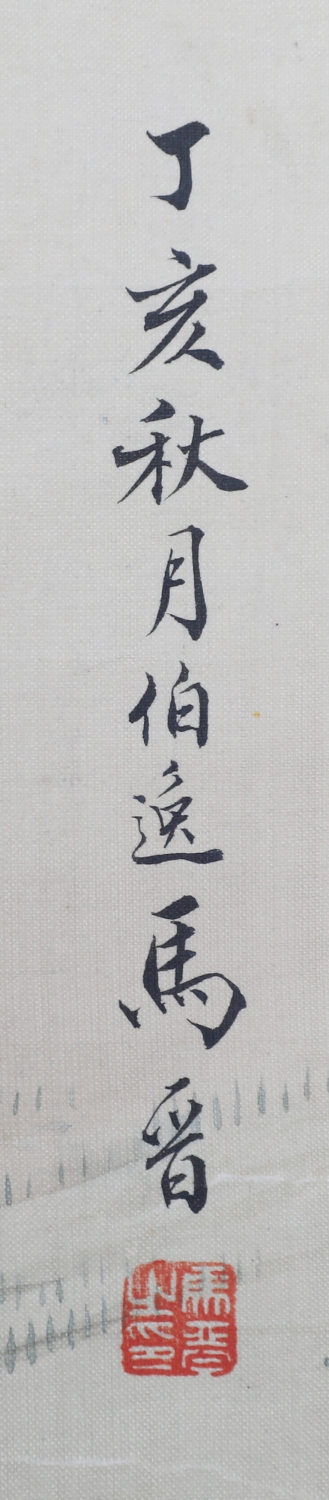 丁亥秋月伯逸馬晉
馬晉之印